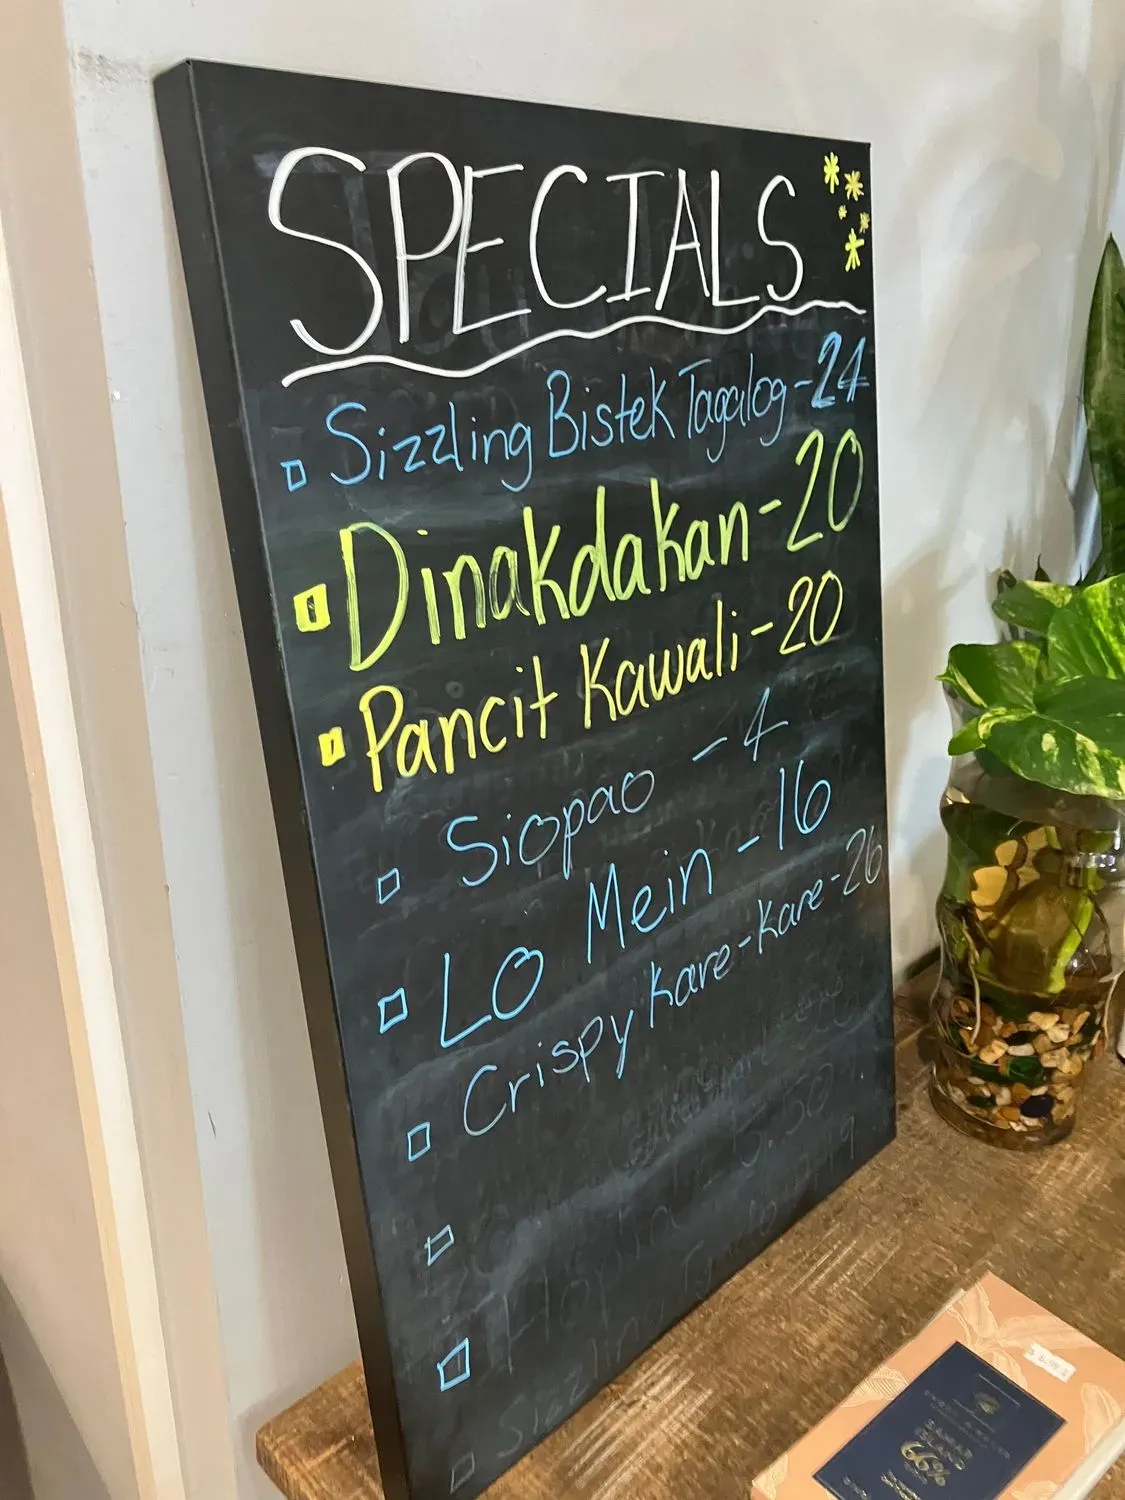 SPECIALS
Sizzling Bistek Tagalog - 24
Dinakdakan - 20
Pancit Kawali - 20
Siopao - 4
LO Mein - 16
Crispy Kare-Kare - 26
66%